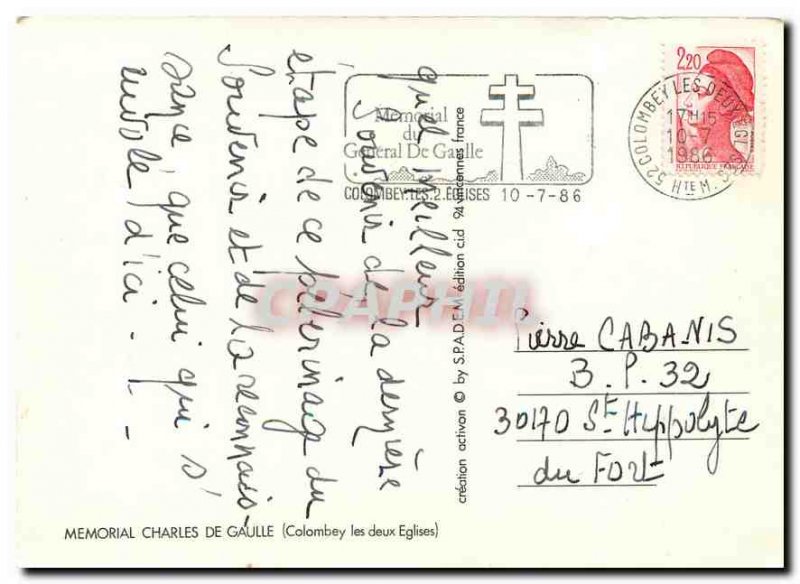 quel meilleur
Souvenir de la dernière
étape de ce pélerinage du
Souvenir et de la reconnais-
sance, que celui qui s'
envole d'ici. - -
Memorial
du
General De Gaulle
COLOMBEY.LES.2.EGLISES 10 -7-86
2,20
REPUBLIQUE FRANÇAISE
52 COLOMBEY LES DEUX EGLISES
17H15
10-7
1986
HTE M.
création activon © by S.P.A.D.E.M. édition c.i.d. 94 vincennes france
CPAPHIL
Pierre CABANIS
B.P. 32
30170 St Hippolyte
du FORt
MEMORIAL CHARLES DE GAULLE (Colombey les deux Eglises)